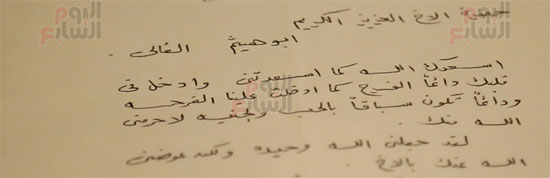 حضرة الاخ العزيز الكريم
ابو هيثم الغالى .
اسعدك الله كما اسعدتنى وادخل فى
قلبك دائماً الفرح كما ادخلت علينا الفرحه
ودائماً تكون سباقاً بالحب ولجنيه لا حرمنى
الله منك .
لقد جعلنى الله وحيده ولكنه عوضنى
الله عنك بالاخ .
اليوم السابع
اليوم السابع